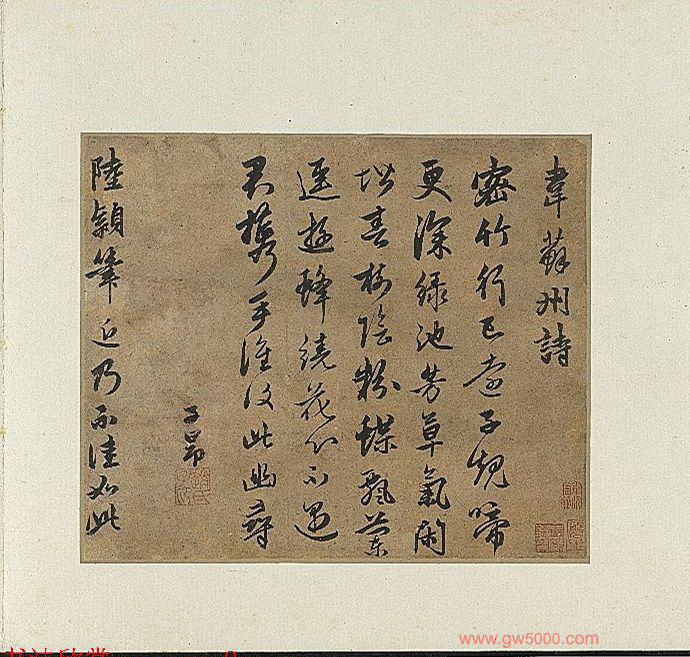 韋蘇州詩
密竹行已遠子規啼
更深綠池芳草氣閑
堦春樹陰粉蝶飄蘭
逕遊蜂繞花心不遇
君攜手誰復此幽尋
子昂
陸穎筆近乃不佳如此
www.gw5000.com